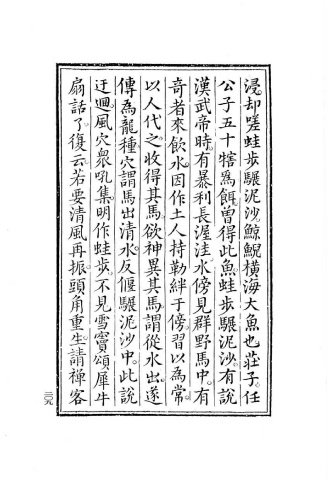 浸却嗟蛙步驟泥沙鯨鯢橫海大魚也莊子任
公子五十犗為餌曽得此魚蛙步驟泥沙有説
漢武帝時有暴利長渥洼水傍見群野馬中有
奇者來飲水因作土人持勒絆于傍習以為常
以人代之收得其馬欲神異其馬謂從水出遂
傳為龍種穴謂馬出清水反偃驟泥沙中此說
迂迴風穴衆吼集明作蛙步不見雪竇頌犀牛
扇話了復云若要清風再振頭角重生請禪客
三〇九